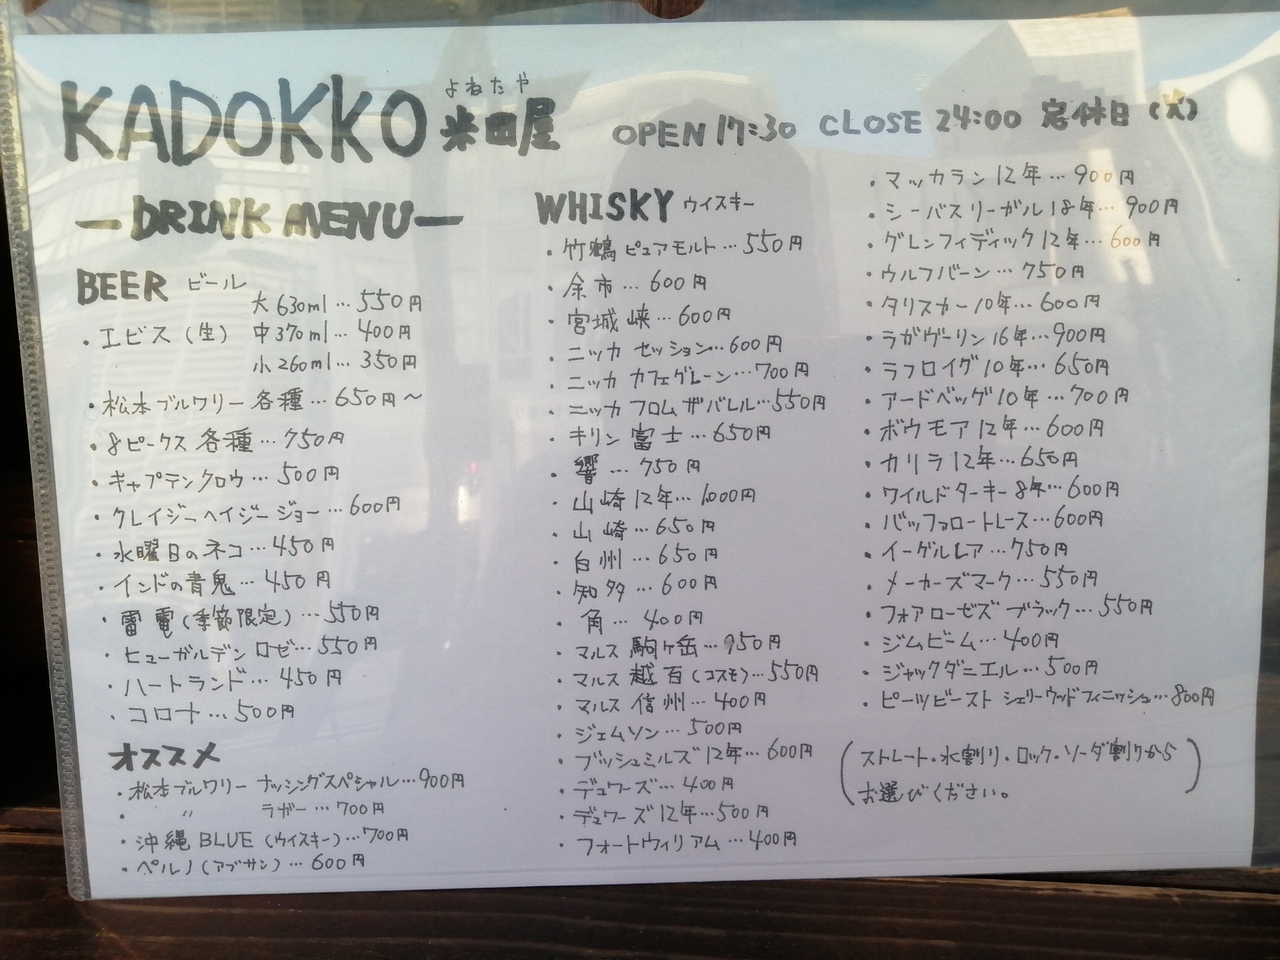 KADOKKO 米田屋 よねたや OPEN 17:30 CLOSE 24:00 定休日(火)
ーDRINK MENUー
BEER ビール
・エビス(生) 大630ml…550円
中370ml…400円
小260ml…350円
・松本ブルワリー 各種…650円〜
・8ピークス 各種…750円
・キャプテンクロウ…500円
・クレイジーヘイジージョー…600円
・水曜日のネコ…450円
・インドの青鬼…450円
・雷電(季節限定)…550円
・ヒューガルデンロゼ…550円
・ハートランド…450円
・コロナ…500円
オススメ
・松本ブルワリー ナッシングスペシャル…900円
・ 〃 ラガー…700円
・沖縄BLUE(ウイスキー)…700円
・ペルノ(アブサン)…600円
WHISKY ウイスキー
・竹鶴 ピュアモルト…550円
・余市…600円
・宮城峡…600円
・ニッカ セッション…600円
・ニッカ カフェグレーン…700円
・ニッカ フロム ザ バレル…550円
・キリン 富士…650円
・響…750円
・山崎12年…1000円
・山崎…650円
・白州…650円
・知多…600円
・角…400円
・マルス 駒ヶ岳…750円
・マルス 越百(コスモ)…550円
・マルス 信州…400円
・ジェムソン…500円
・ブッシュミルズ12年…600円
・デュワーズ…400円
・デュワーズ12年…500円
・フォートウィリアム…400円
・マッカラン12年…900円
・シーバスリーガル18年…900円
・グレンフィディック12年…600円
・ウルフバーン…750円
・タリスカー10年…600円
・ラガヴーリン16年…900円
・ラフロイグ10年…650円
・アードベッグ10年…700円
・ボウモア12年…600円
・カリラ12年…650円
・ワイルドターキー8年…600円
・バッファロートレース…600円
・イーグルレア…750円
・メーカーズマーク…550円
・フォアローゼズ ブラック…550円
・ジムビーム…400円
・ジャックダニエル…500円
・ピーツビースト シェリーウッドフィニッシュ…800円
(ストレート・水割り・ロック・ソーダ割りから
お選びください。)